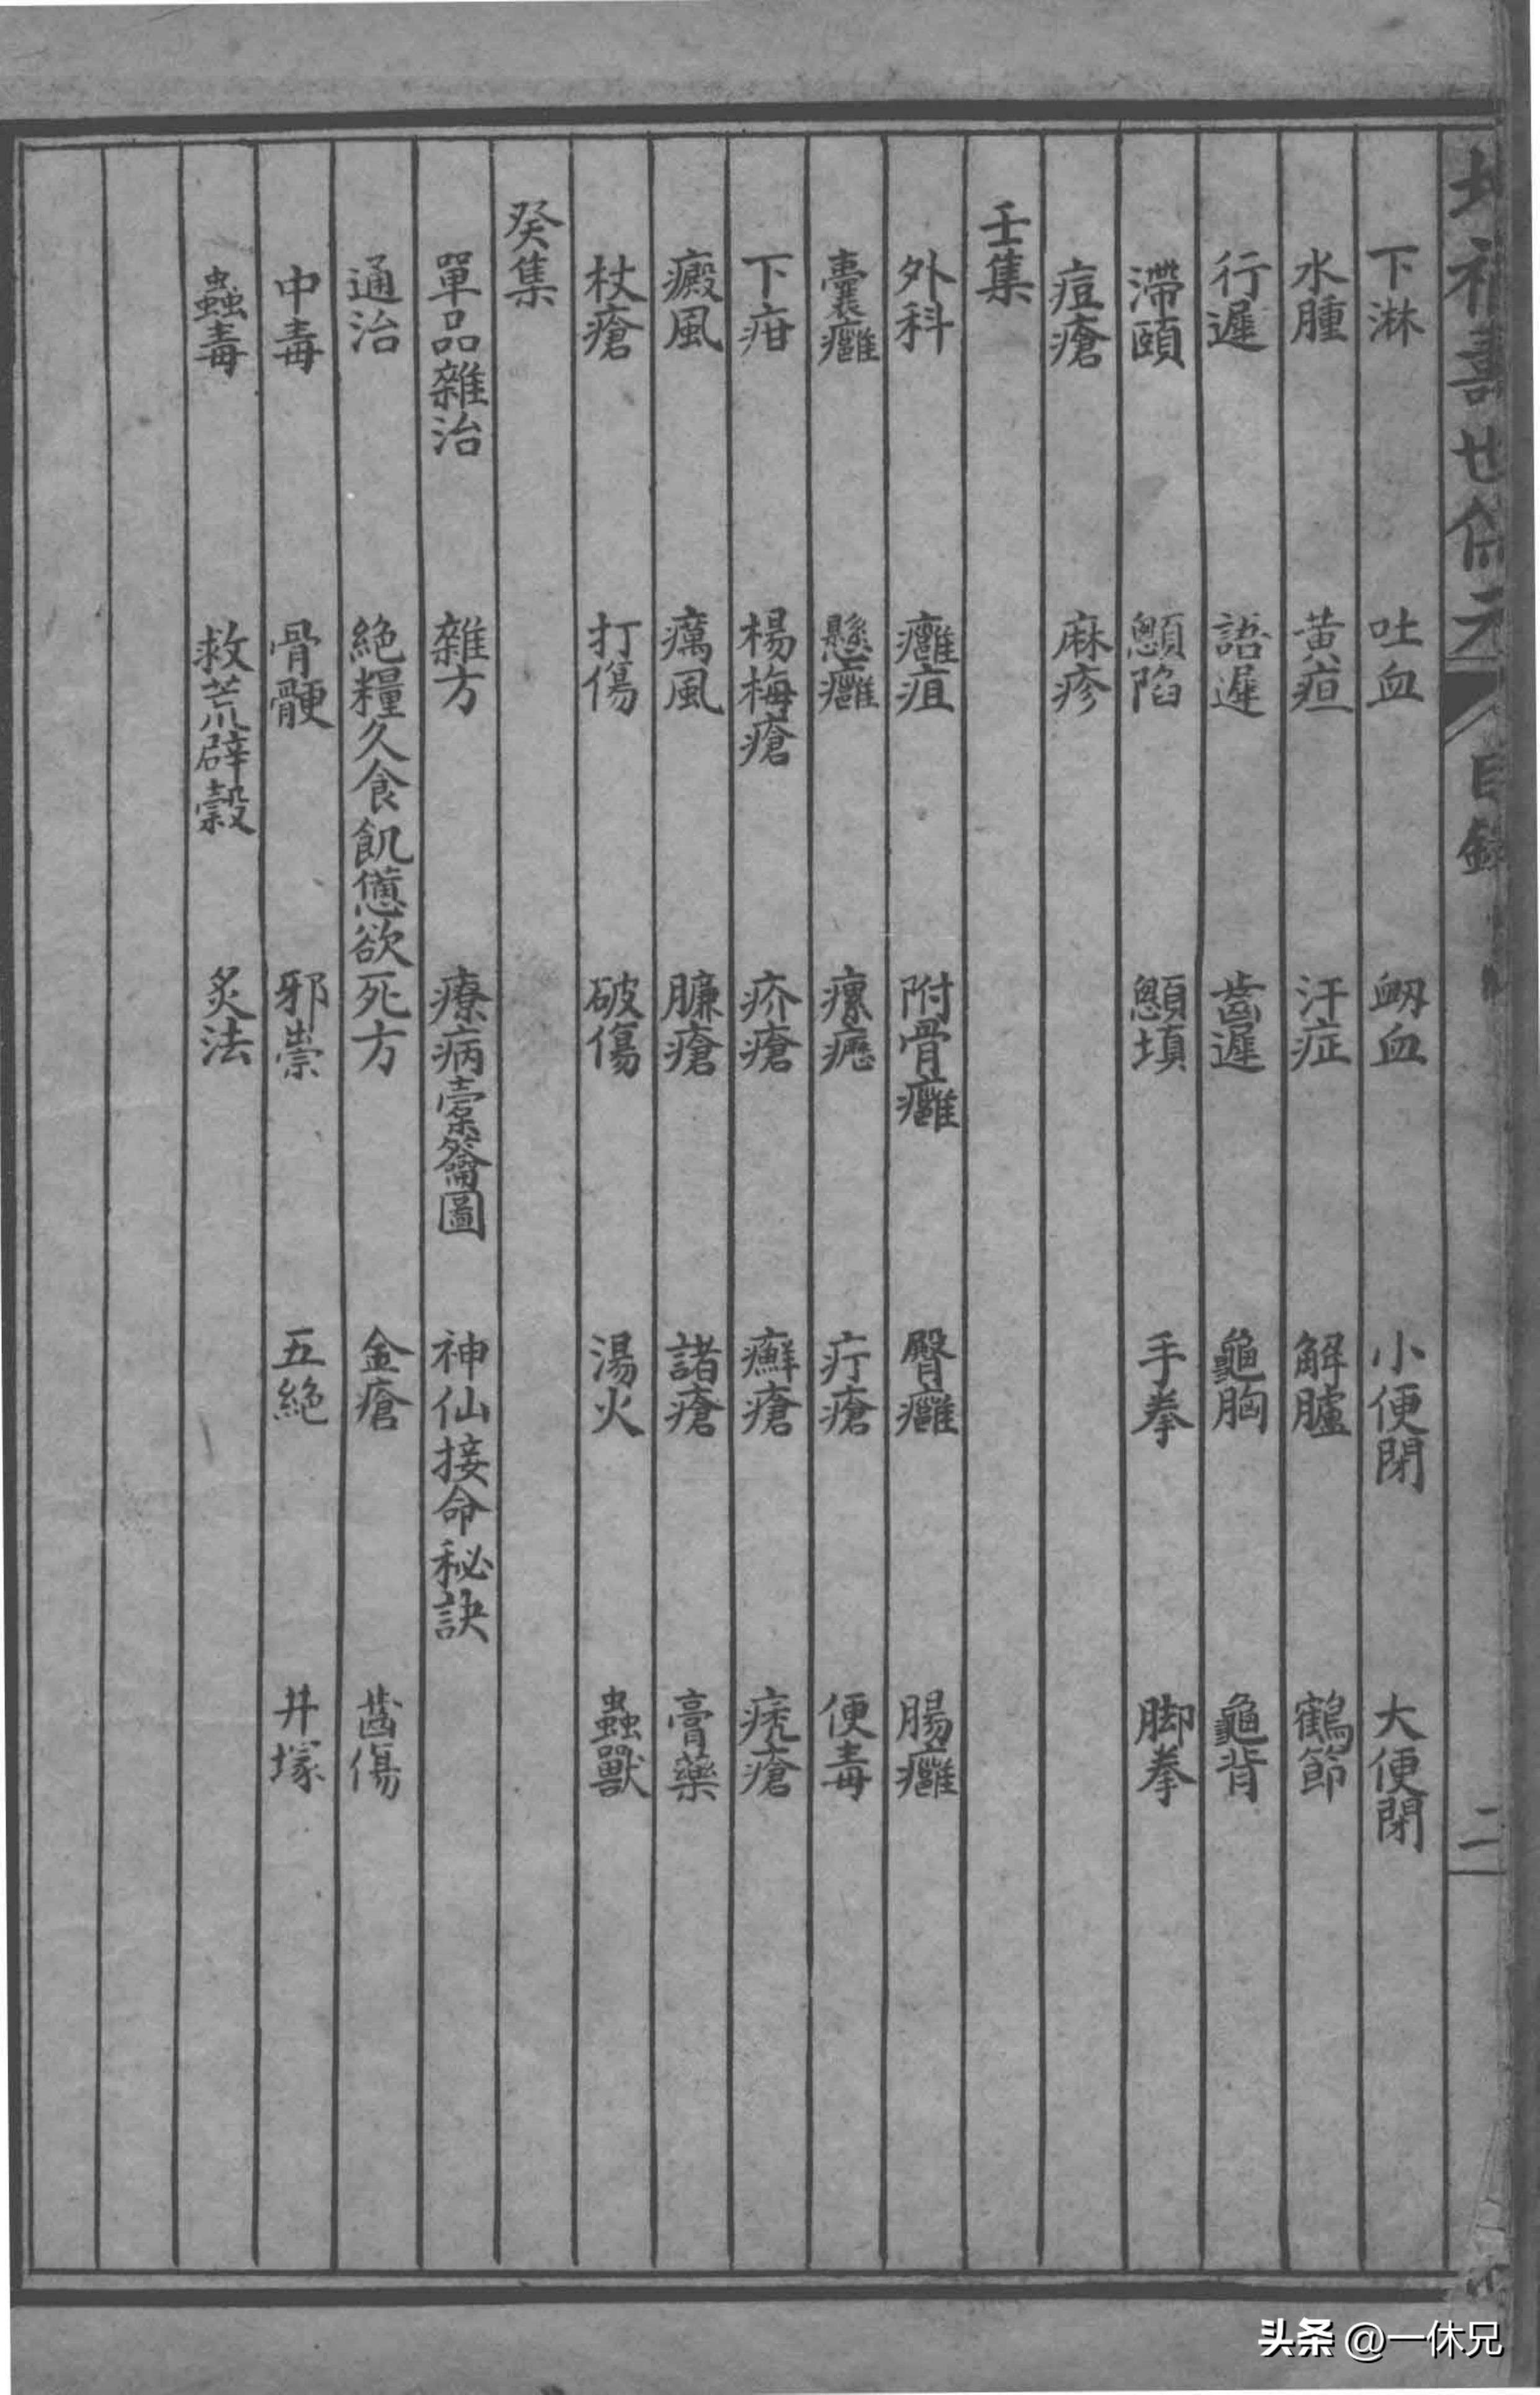 壽世保元 目錄 二
下淋 吐血 衂血 小便閉 大便閉
水腫 黃疸 汗症 解臚 鶴節
行遲 語遲 齒遲 龜胸 龜背
滯頤 顖陷 顖塡 手拳 脚拳
痘瘡 麻疹
壬集
外科 癰疽 附骨癰 臀癰 腸癰
囊癰 懸癰 瘰癧 疔瘡 便毒
下疳 楊梅瘡 疥瘡 癬瘡 禿瘡
癜風 癘風 臁瘡 諸瘡 膏藥
杖瘡 打傷 破傷 湯火 蟲獸
癸集
單品雜治 雜方 療病橐籥圖 神仙接命秘訣
通治 絶糧久食飢憊欲死方 金瘡 齒傷
中毒 骨骾 邪祟 五絶 井塚
蟲毒 救荒辟穀 炙法
头条 @一休兄